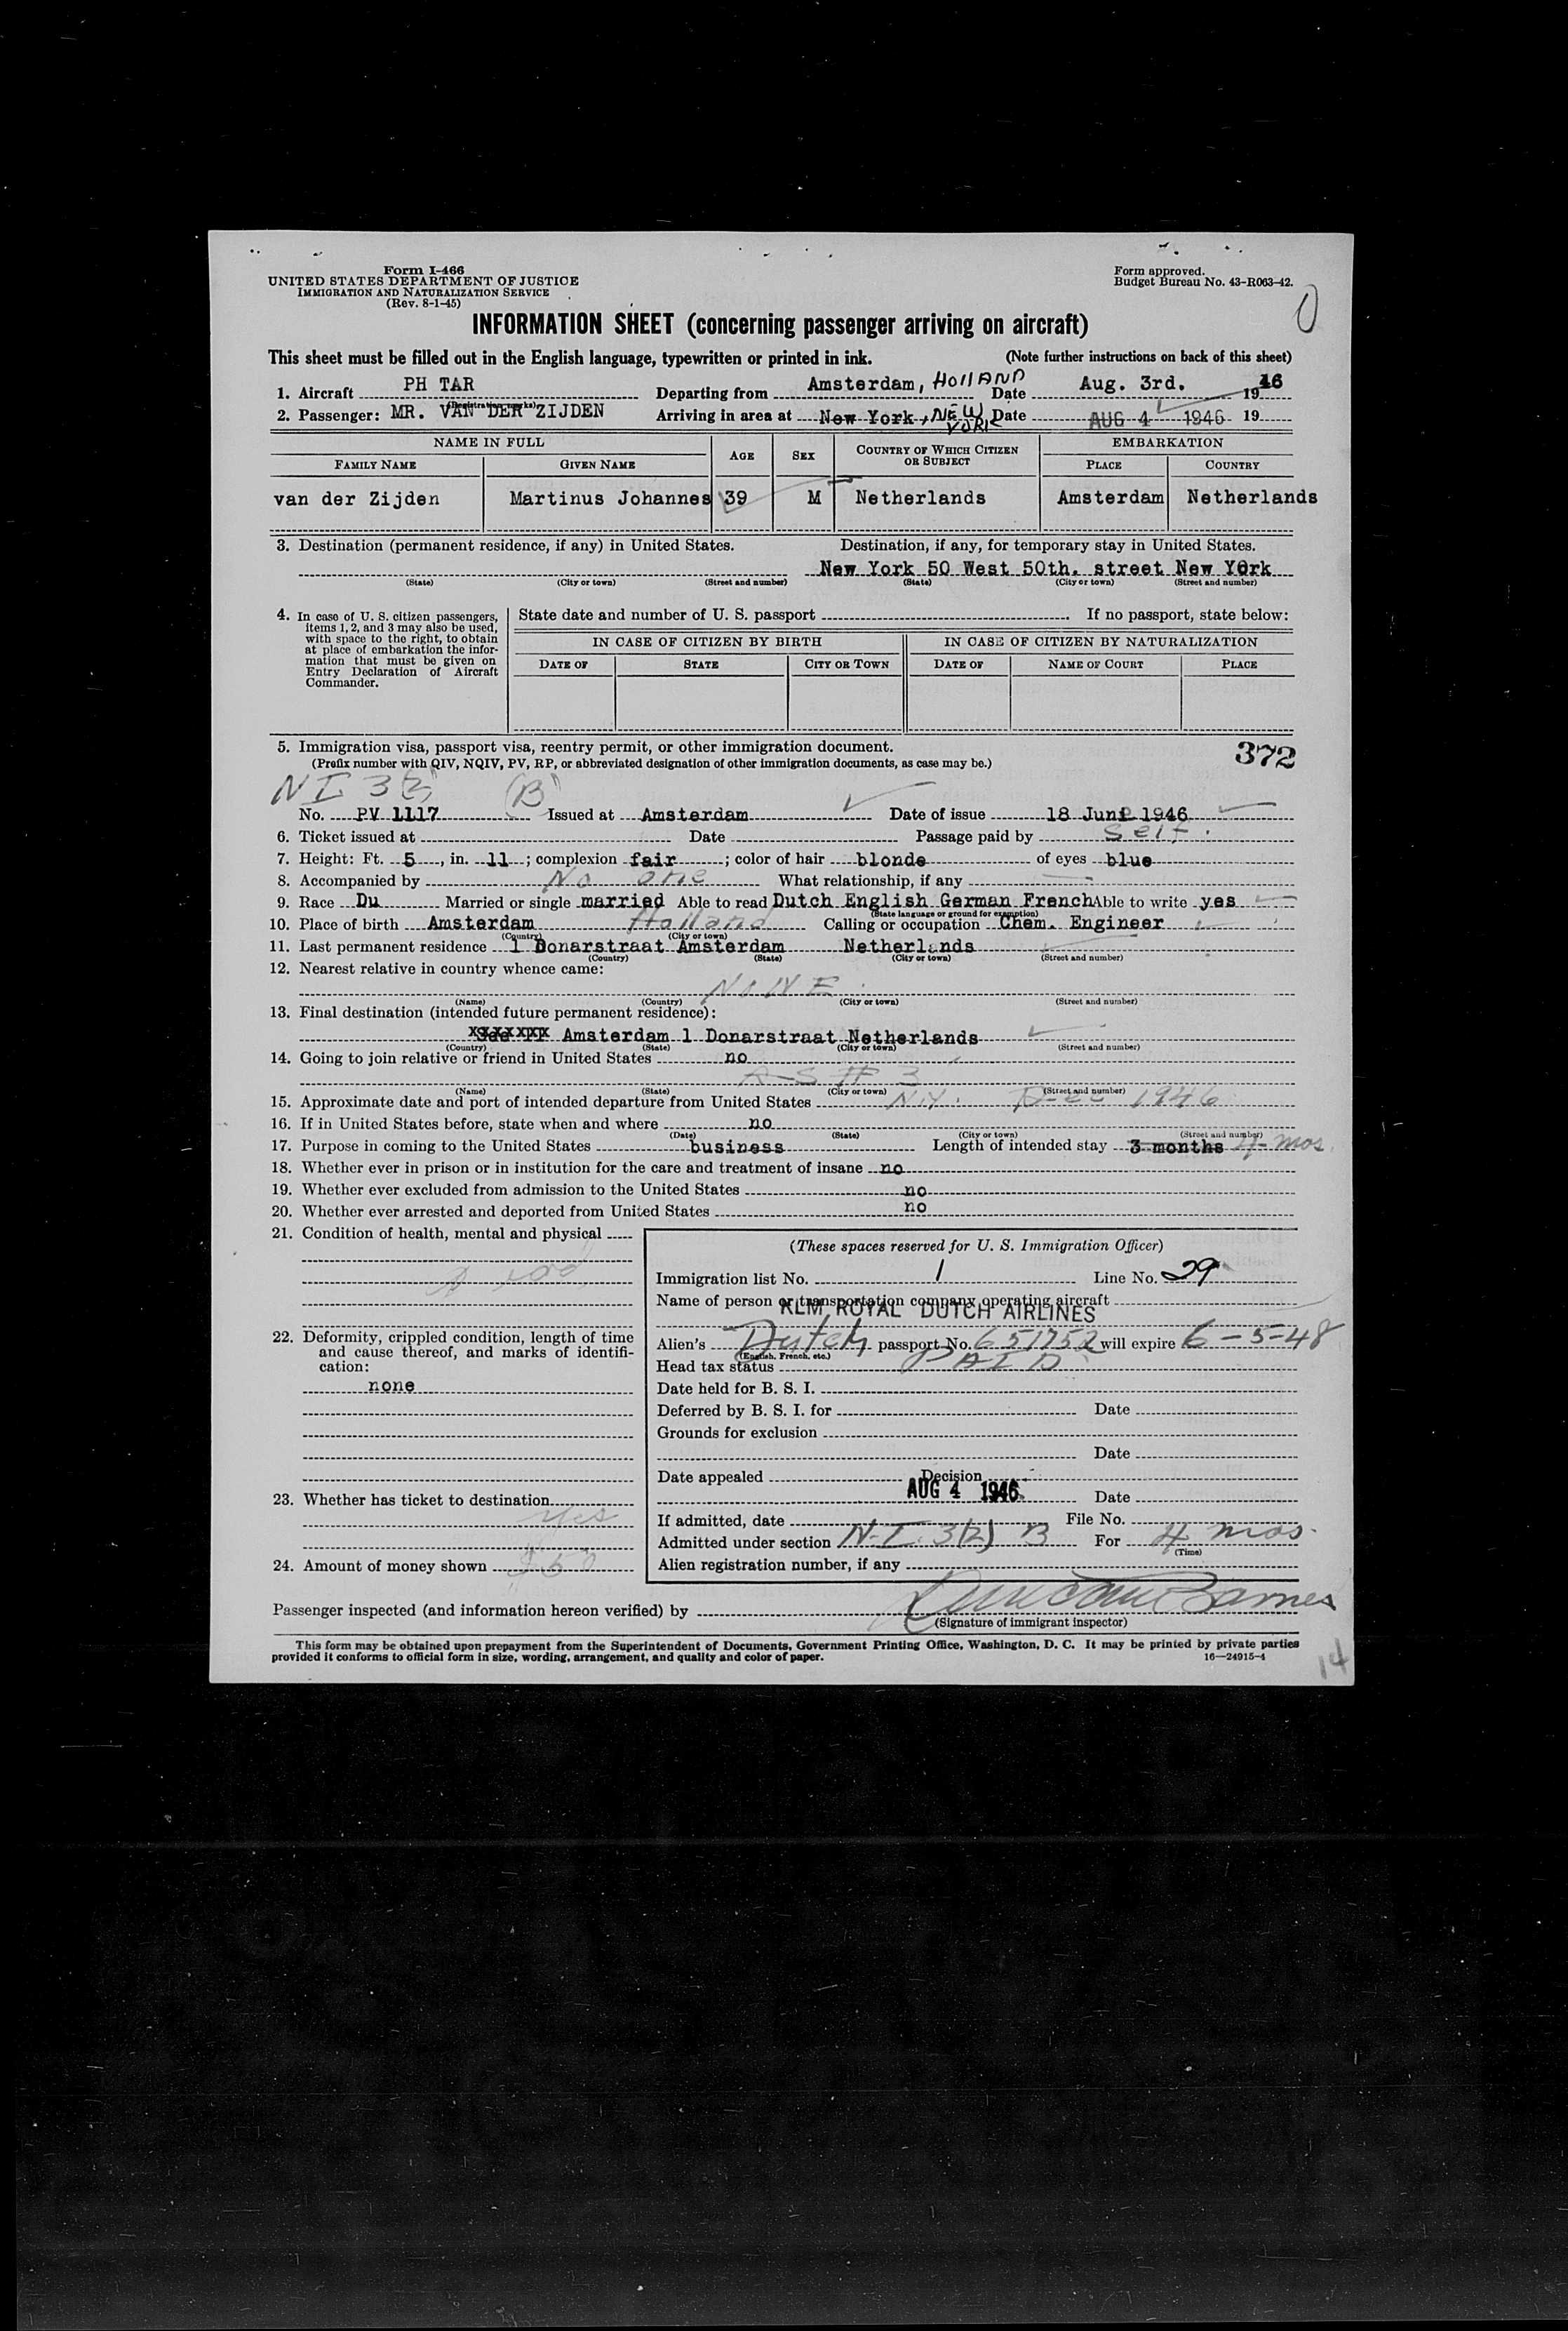 Form I-466
UNITED STATES DEPARTMENT OF JUSTICE
IMMIGRATION AND NATURALIZATION SERVICE
(Rev. 8-1-45)
Form approved.
Budget Bureau No. 43-R063-42.
INFORMATION SHEET (concerning passenger arriving on aircraft)
This sheet must be filled out in the English language, typewritten or printed in ink. (Note further instructions on back of this sheet)
1. Aircraft PH TAR Departing from Amsterdam, HOLLAND Date Aug. 3rd. 1946
(Registration marks)
2. Passenger: MR. VAN DER ZIJDEN Arriving in area at New York, NEW YORK Date AUG 4 1946 19
NAME IN FULL AGE SEX COUNTRY OF WHICH CITIZEN OR SUBJECT EMBARKATION
FAMILY NAME GIVEN NAME PLACE COUNTRY
van der Zijden Martinus Johannes 39 M Netherlands Amsterdam Netherlands
3. Destination (permanent residence, if any) in United States. Destination, if any, for temporary stay in United States.
New York 50 West 50th. street New York
(State) (City or town) (Street and number) (State) (City or town) (Street and number)
4. In case of U. S. citizen passengers, items 1, 2, and 3 may also be used, with space to the right, to obtain at place of embarkation the information that must be given on Entry Declaration of Aircraft Commander.
State date and number of U. S. passport If no passport, state below:
IN CASE OF CITIZEN BY BIRTH IN CASE OF CITIZEN BY NATURALIZATION
DATE OF STATE CITY OR TOWN DATE OF NAME OF COURT PLACE
5. Immigration visa, passport visa, reentry permit, or other immigration document. 372
(Prefix number with QIV, NQIV, PV, RP, or abbreviated designation of other immigration documents, as case may be.)
NI 3(2) (B)
No. PV 1117 Issued at Amsterdam Date of issue 18 June 1946
6. Ticket issued at Date Passage paid by Self
7. Height: Ft. 5, in. 11; complexion fair; color of hair blonde of eyes blue
8. Accompanied by No one What relationship, if any
9. Race Du Married or single married Able to read Dutch English German French Able to write yes
(State language or ground for exemption)
10. Place of birth Amsterdam Holland Calling or occupation Chem. Engineer
(Country) (City or town)
11. Last permanent residence 1 Donarstraat Amsterdam Netherlands
(Country) (State) (City or town) (Street and number)
12. Nearest relative in country whence came:
NONE
(Name) (Country) (City or town) (Street and number)
13. Final destination (intended future permanent residence):
Amsterdam 1 Donarstraat Netherlands
(Country) (State) (City or town) (Street and number)
14. Going to join relative or friend in United States no
AS # 3
(Name) (State) (City or town) (Street and number)
15. Approximate date and port of intended departure from United States N.Y. Dec 1946
16. If in United States before, state when and where no
(Date) (State) (City or town) (Street and number)
17. Purpose in coming to the United States business Length of intended stay 3 months 4 mos.
18. Whether ever in prison or in institution for the care and treatment of insane no
19. Whether ever excluded from admission to the United States no
20. Whether ever arrested and deported from United States no
21. Condition of health, mental and physical
good
22. Deformity, crippled condition, length of time and cause thereof, and marks of identification:
none
23. Whether has ticket to destination
yes
24. Amount of money shown $50
(These spaces reserved for U. S. Immigration Officer)
Immigration list No. 1 Line No. 29
Name of person or transportation company operating aircraft
KLM ROYAL DUTCH AIRLINES
Alien's Dutch passport No. 651752 will expire 6-5-48
(English, French, etc.)
Head tax status PAID
Date held for B. S. I.
Deferred by B. S. I. for Date
Grounds for exclusion
Date
Date appealed Decision
AUG 4 1946 Date
If admitted, date File No.
Admitted under section N.I. 3(2) B For 4 mos.
(Time)
Alien registration number, if any
Passenger inspected (and information hereon verified) by Duncan Barnes
(Signature of immigrant inspector)
This form may be obtained upon prepayment from the Superintendent of Documents, Government Printing Office, Washington, D. C. It may be printed by private parties
provided it conforms to official form in size, wording, arrangement, and quality and color of paper. 16—24915-4
14